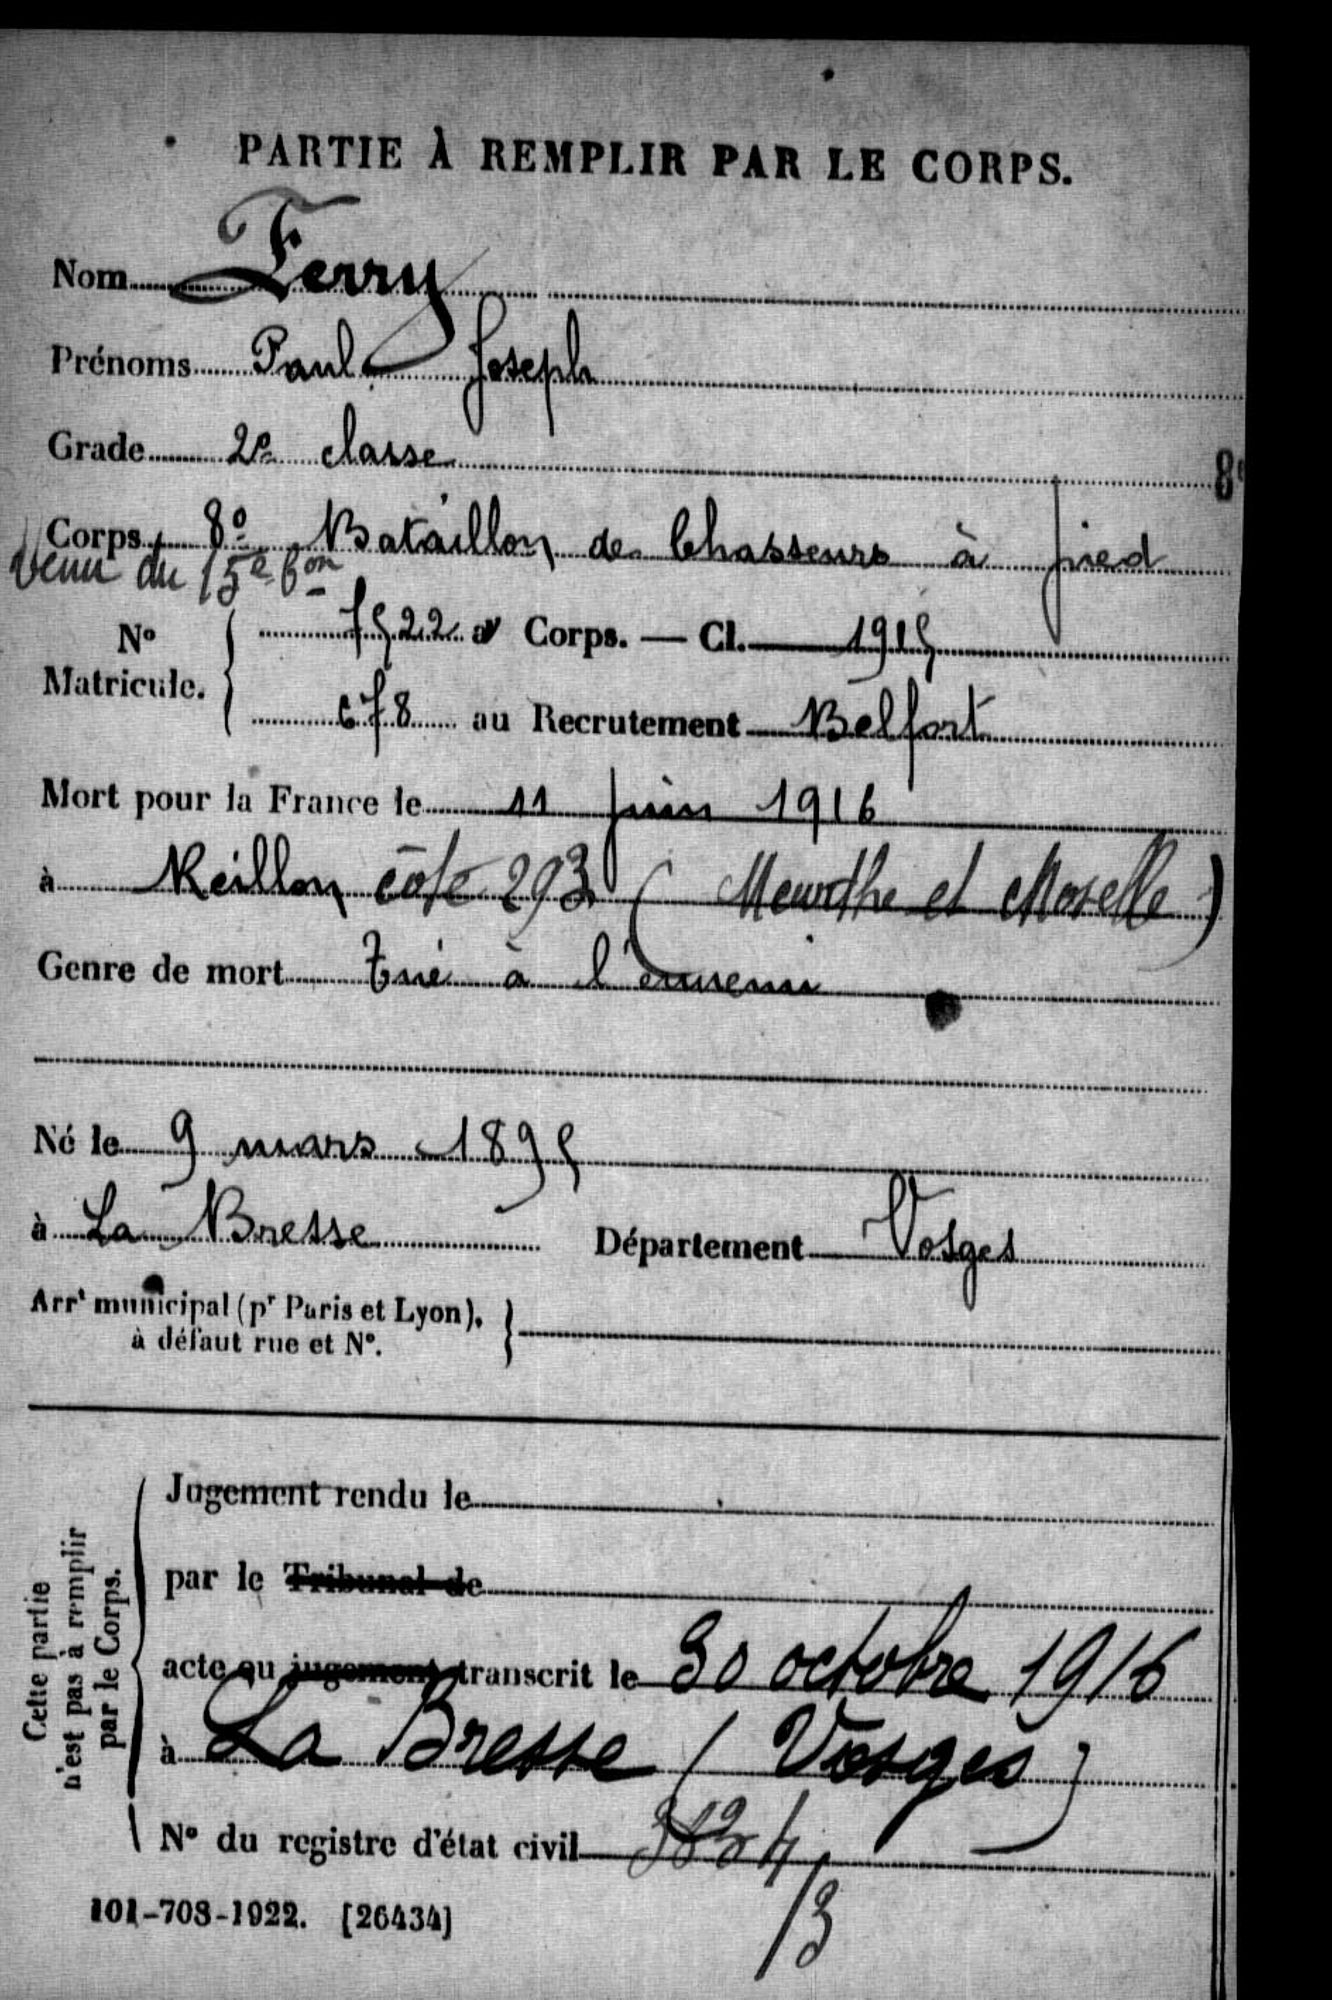 PARTIE À REMPLIR PAR LE CORPS.
Nom Ferry
Prénoms Paul Joseph
Grade 2e classe
8e
Corps 8e Bataillon de Chasseurs à pied
Venu du 15e bon
No Matricule. { 7522 au Corps. — Cl. 1915
678 au Recrutement Belfort
Mort pour la France le 11 juin 1916
à Reillon côte 293 (Meurthe et Moselle)
Genre de mort Tué à l'ennemi
Né le 9 mars 1895
à La Bresse Département Vosges
Arrt municipal (pr Paris et Lyon),
à défaut rue et No.
Cette partie n'est pas à remplir par le Corps.
Jugement rendu le
par le Tribunal de
acte ou jugement transcrit le 30 octobre 1916
à La Bresse (Vosges)
No du registre d'état civil
101-708-1922. [26434]